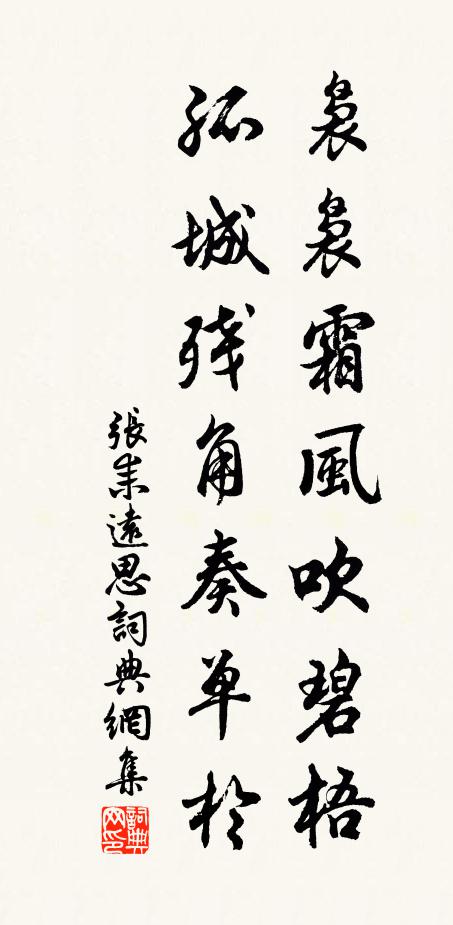 裊裊霜風吹碧梧
孤城残角奏单於
張耒遠思詞典網集
詞典网印